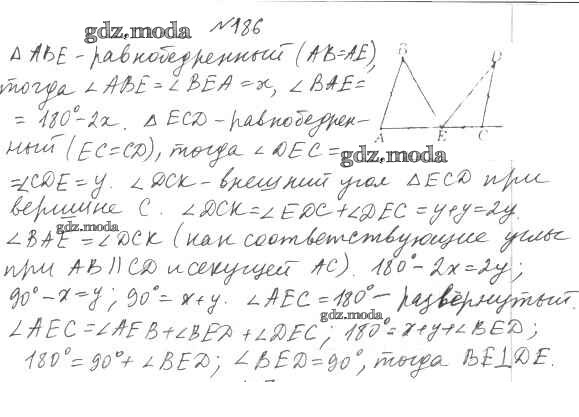 gdz.moda №186
△ABE - равнобедренный (AB=AE),
тогда ∠ABE = ∠BEA = x, ∠BAE =
= 180° - 2x. △ECD - равнобедрен-
ный (EC=CD), тогда ∠DEC =
gdz.moda
=∠CDE = y. ∠DCK - внешний угол △ECD при
вершине C. ∠DCK = ∠EDC + ∠DEC = y+y = 2y.
gdz.moda
∠BAE = ∠DCK (как соответствующие углы
при AB || CD и секущей AC). 180° - 2x = 2y;
90° - x = y; 90° = x + y. ∠AEC = 180° - развёрнутый.
gdz.moda
∠AEC = ∠AEB + ∠BED + ∠DEC; 180° = x+y+∠BED;
180° = 90° + ∠BED; ∠BED = 90°, тогда BE⊥DE.
B
D
A
E
C